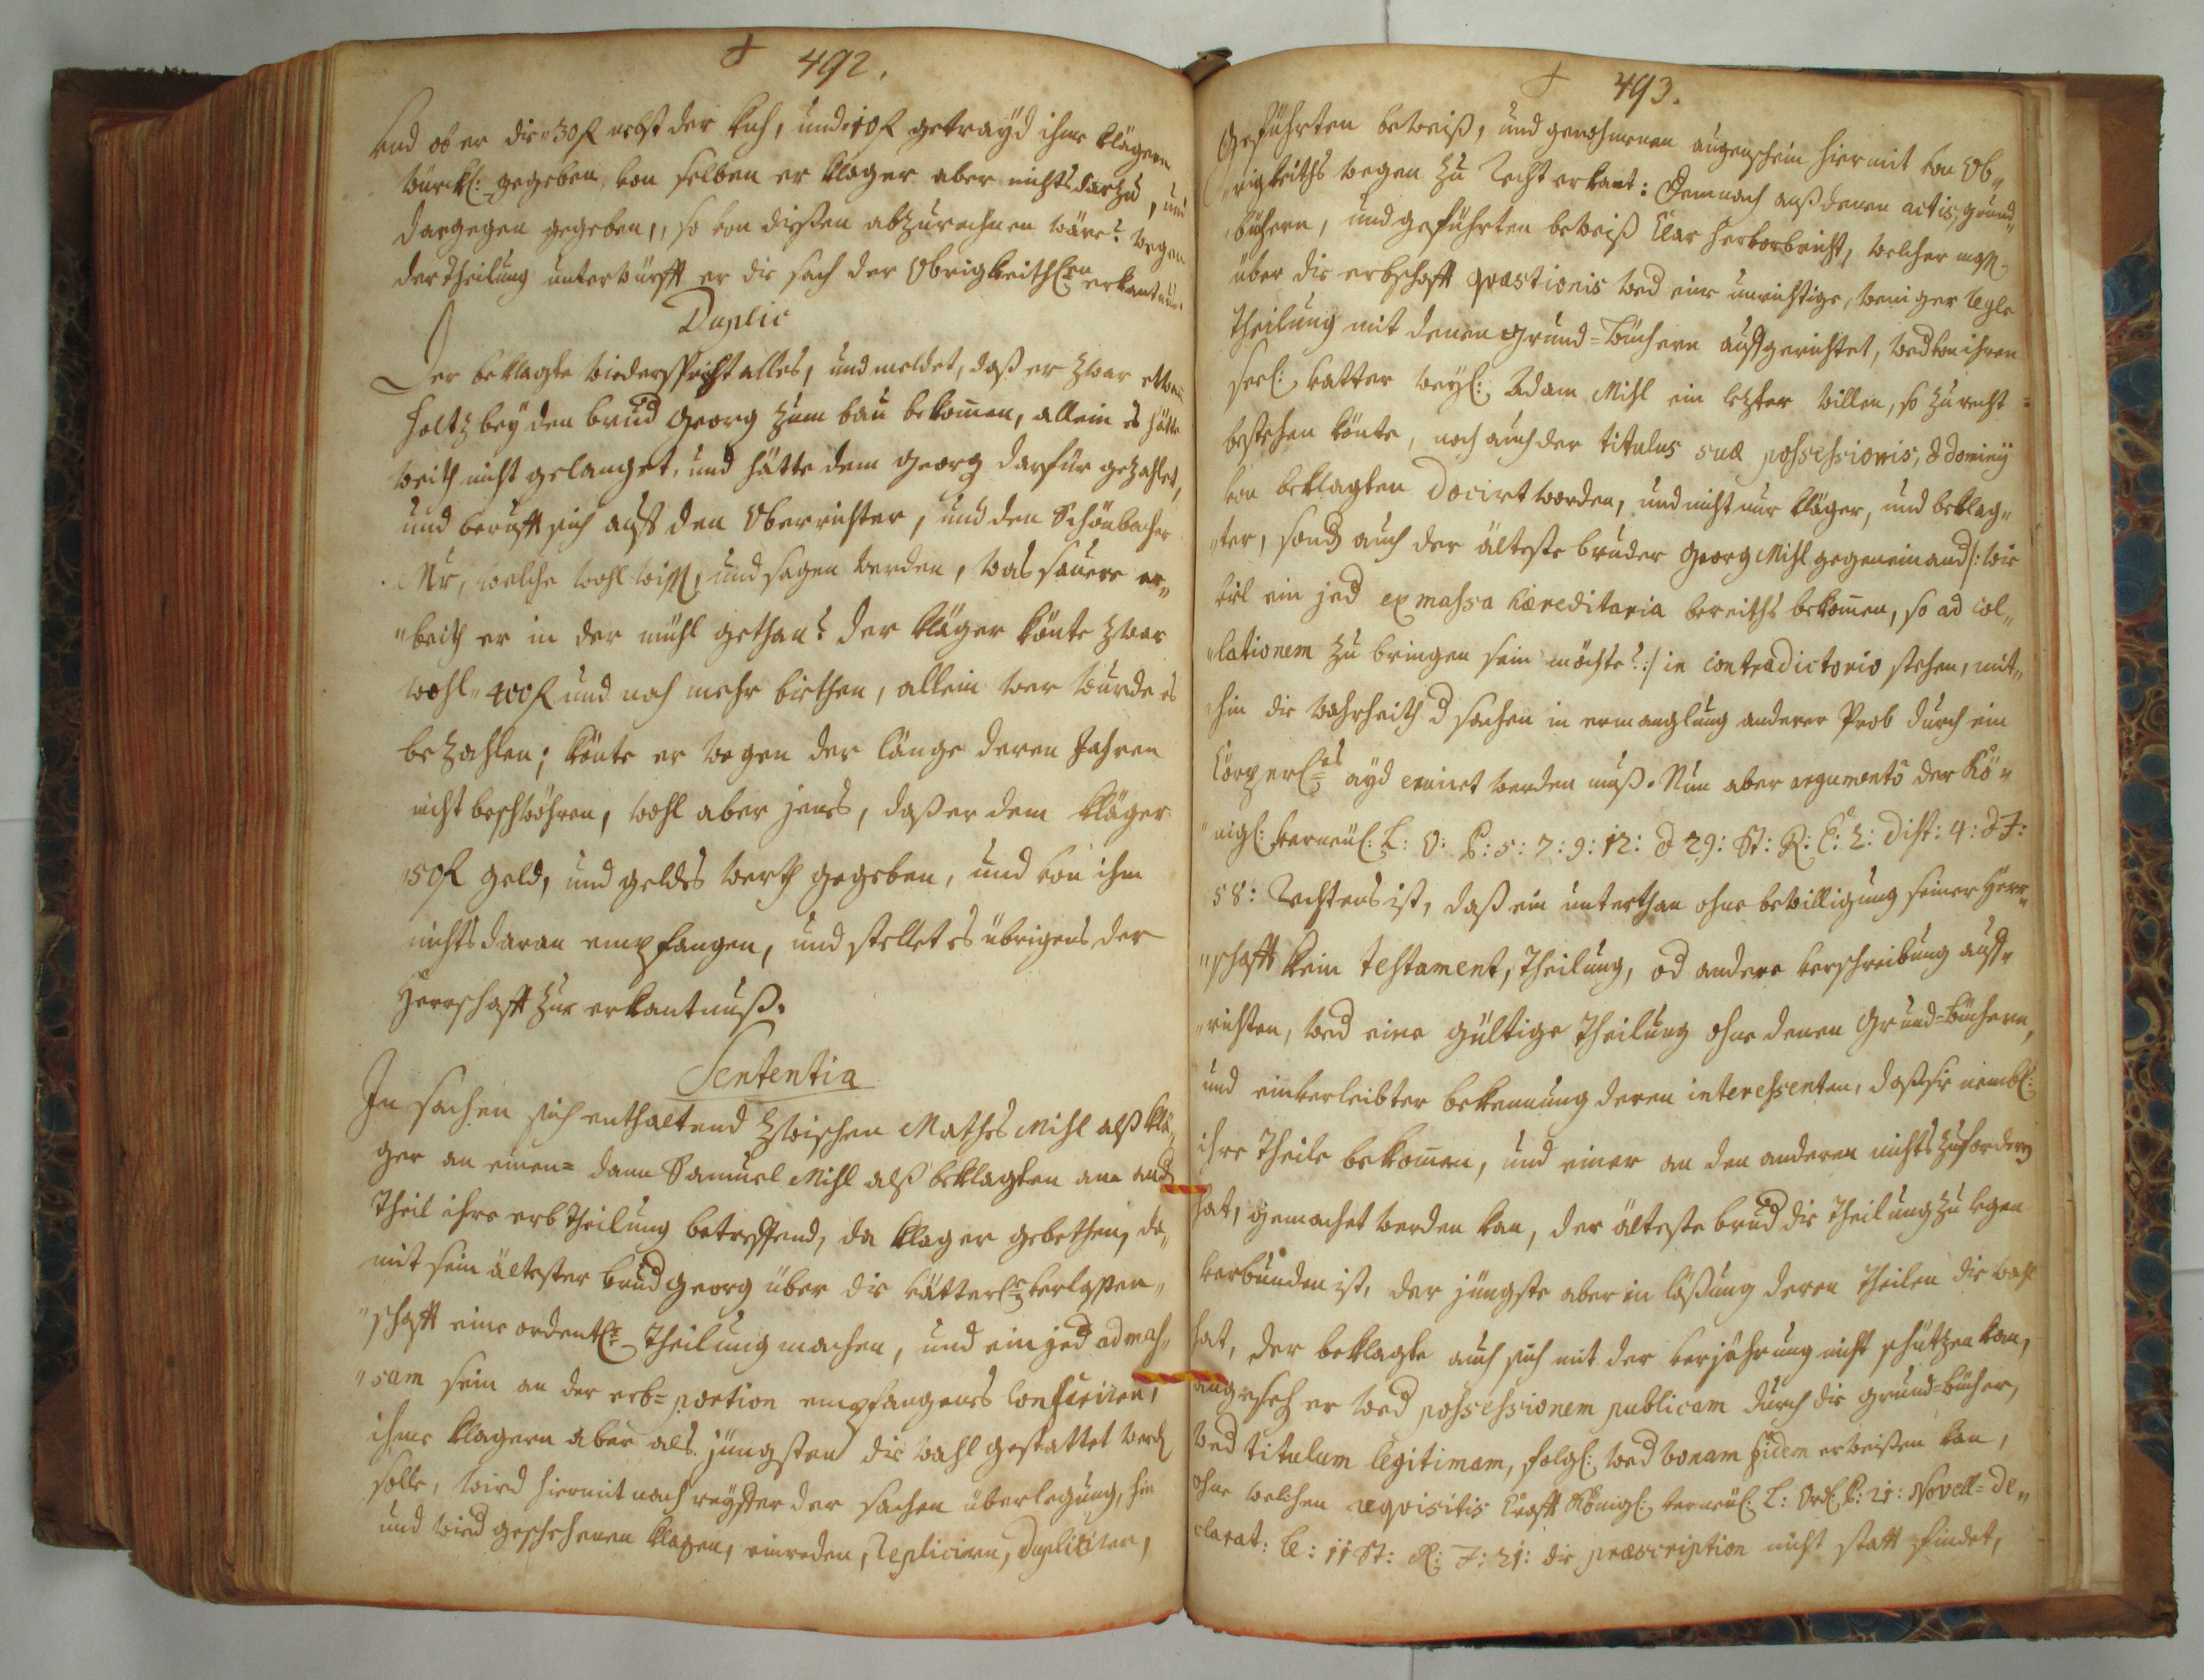 492.
und ob er die 30 f nebst der Kuh, und 10 f getrayd ihme klägern
würkl: gegeben, von selben er klager aber nichts darzu, und
dargegen gegeben,, so von dießen abzurechnen wäre? wegen
der theilung unterwürfft er die sach der Obrigkeithl:en erkantnuß.
Duplic
Der beklagte widerspricht alles, und meldet, daß er zwar etwas
holtz bey den brud Georg zum bau bekom̄en, allein es hätte
weith nicht gelanget, und hätte dem Georg darfür gezahlet,
und berufft sich auf den Oberrichter, und den Schönbacher
Mr, welche wohl wissen, und sagen werden, was sauere ar„
„beith er in der mühl gethan? der kläger könte zwar
wohl „400 f und noch mehr biethen, allein wer wurde es
bezahlen; könte er wegen der länge deren Jahren
nicht beschwöhren, wohl aber jenes, daß er dem kläger
50 f geld, und geldes werth gegeben, und von ihm
nichts daran empfangen, und stellet es übrigens der
Herrschafft zur erkantnuß.
Sententia
In sachen sich enthaltend zwischen Mathes Mihl alß klä„
ger an einen= dann Samuel Mihl alß beklagten am and
Theil ihre erbtheilung betreffend, da klager gebethen, da„
mit sein ältester brud Georg über die vätterl: verlassen„
„schafft eine ordentl: Theilung machen, und ein jed ad mas„
„sam sein an der erb=portion empfangenes conferiren,
ihme klagern aber als jüngsten die wahl gestattet werd
solle, wird hiermit nach reiffer der sachen überlegung, hin
und wied geschehenen klagen, einreden, Replicirn, Dupliciren,
493.
Geführten beweiß, und genohmenen augenschein hiermit von Ob„
„rigkeiths wegen zu Recht erkant: Demnach auß denen actis, grund„
„büchern, und geführten beweiß klar hervorbricht, welcher mass
über die erbschafft quæstionis wed eine unrichtige, weniger legle
Theilung mit denen Grund=Büchern aufgerichtet, wed von ihren
seel: vatter weyl: Adam Mihl ein letzter willen, so zu recht
bestehen könte, noch auch der titulus suæ possessionis, & dominij
von beklagten docirt worden, und nicht nur kläger, und beklag„
„ter, sond auch der älteste bruder Georg Mihl gegeneinand /: wie
viel ein jed ex massa hæreditaria bereiths bekom̄en, so ad col„
„lationem zu bringen sein möchte? :/ in contradictorio stehen, mit„
„hin die wahrheith d sachen in ermanglung anderer Prob durch ein
körperl:es ayd eruirt werden muß. Nun aber argumentô der Kö„
„nigl: verneül: L: O: P: 5: 7: 9: 12: & 29: St: R: C: 2: dist: 4: & J:
58: Rechtens ist, daß ein unterthan ohne bewilligung seiner Herr„
„schafft kein testament, Theilung, od andere verschreibung auf„
„richten, wed eine gültige Theilung ohne denen Grund=Büchern,
und einverleibter bekennung deren interessenten, daß sie nembl:
ihre Theile bekom̄en, und einer an den anderen nichts zu fordern
hat, gemachet werden kan, der älteste brud die Theilung zu legen
verbunden ist, der jüngste aber in lößung deren Theilen die wahl
hat, der beklagte auch sich mit der verjährung nicht schützen kan,
angeseh er wed possessionem publicam durch die grund=bücher,
wed titulum legitimam, folgl: wed bonam fidem erweißen kan,
ohne welchen requisitis krafft Königl: verneül: L: Ord: P: 21: Novell= de„
clarat: C: 11 St: R: J: 21: die præscription nicht statt findet,